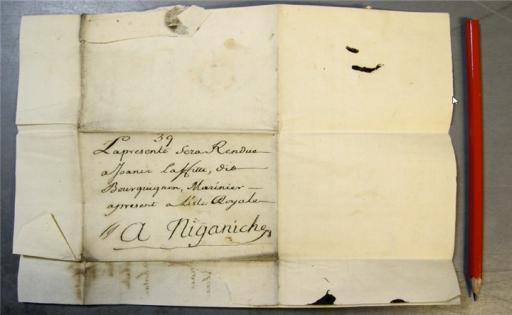 39
Lapresente Sera Rendue
a Joanis Laffitte, dit
Bourguignon, Marinier
apresent a L'isle Royale
A Niganiche